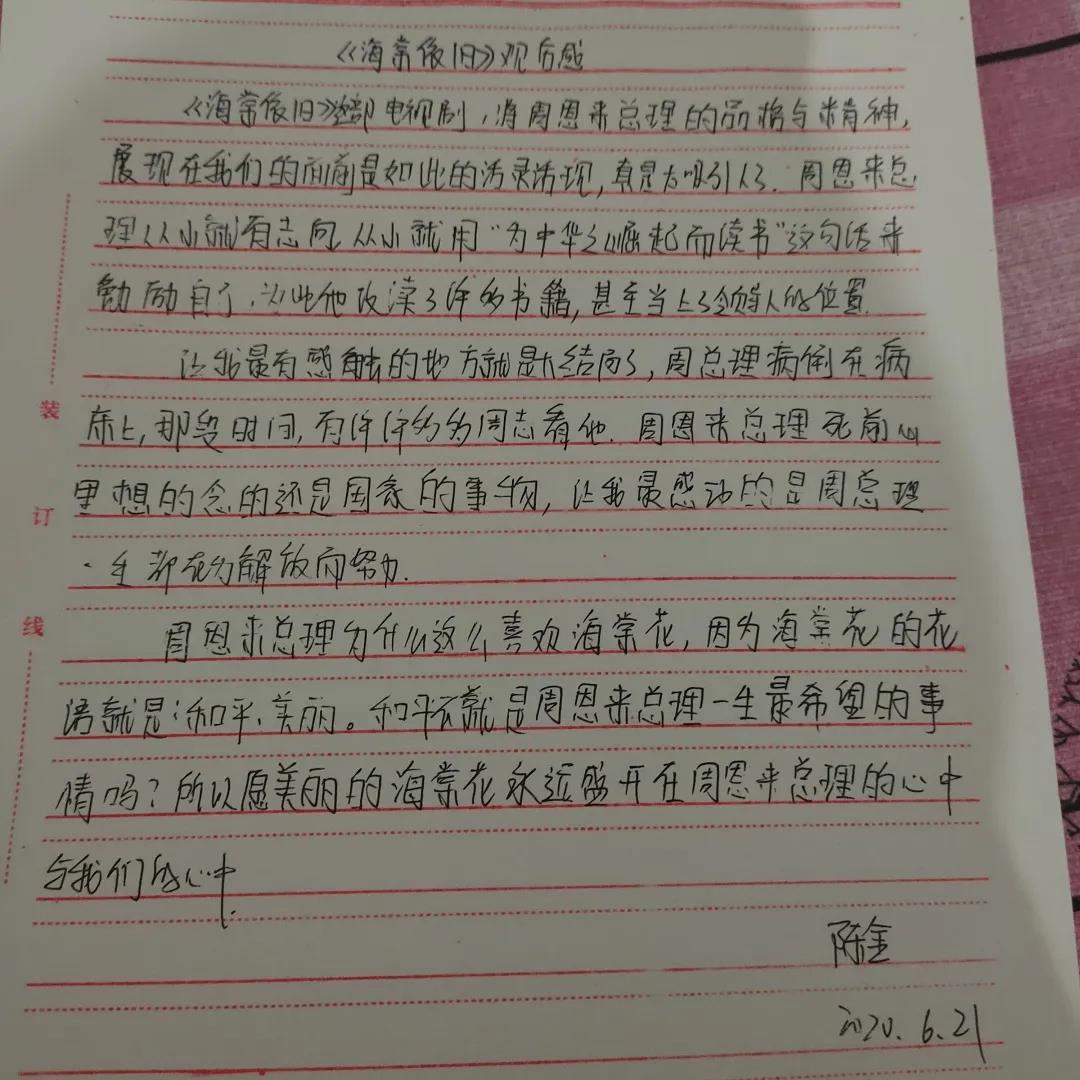 《海棠依旧》观后感
《海棠依旧》这部电视剧，将周恩来总理的品格与精神，
展现在我们的面前是如此的活灵活现，真是太吸引人了．周恩来总
理从小就有志向，从小就用“为中华之崛起而读书”这句话来
勉励自己，为此他攻读了许多书籍，甚至当上了领导人的位置．
让我最有感触的地方就是大结局了，周总理病倒在病
床上，那段时间，有许许多多周志看他．周恩来总理死前心
里想的念的还是国家的事物，让我最感动的是周总理
一生都在为解放而努力．
周恩来总理为什么这么喜欢海棠花，因为海棠花的花
语就是：和平、美丽。和平不就是周恩来总理一生最希望的事
情吗？所以愿美丽的海棠花永远盛开在周恩来总理的心中
与我们的心中．
陈金
2020.6.21
装
订
线